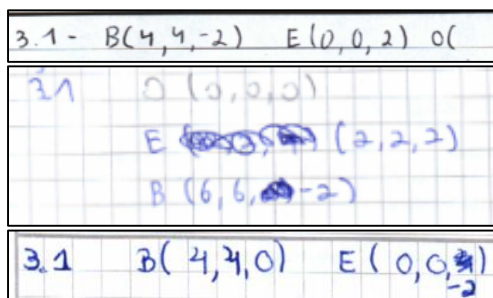 3.1 - B(4,4,-2) E(0,0,2) O(
3.1 O (0,0,0)
E (2,2,2)
B (6,6,-2)
3.1 B(4,4,0) E(0,0,-2)